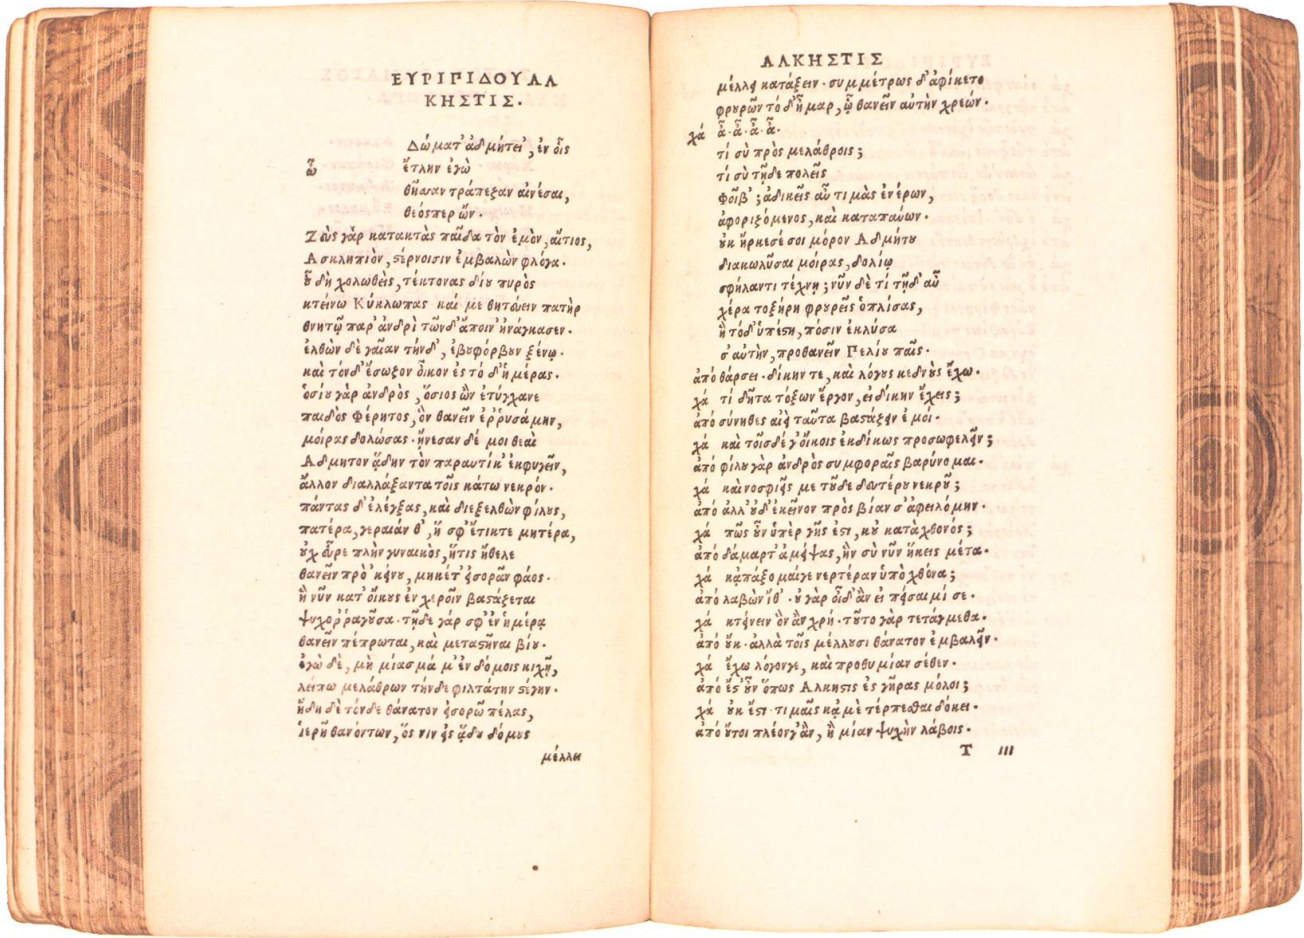 ΕΥΡΙΠΙΔΟΥ ΑΛ
ΚΗΣΤΙΣ.
Δώματ' ἀδμήτει', ἐν οἷς
ὦ ἔτλην ἐγὼ
θῆσσαν τράπεζαν αἰνέσαι,
θεός περ ὤν.
Ζεὺς γὰρ κατακτὰς παῖδα τὸν ἐμὸν, αἴτιος,
Ἀσκληπιὸν, στέρνοισιν ἐμβαλὼν φλόγα.
οὗ δὴ χολωθεὶς, τέκτονας δίου πυρὸς
κτείνω Κύκλωπας καί με θητεύειν πατὴρ
θνητῷ παρ' ἀνδρὶ τῶνδ' ἄποιν' ἠνάγκασεν.
ἐλθὼν δὲ γαῖαν τήνδ', ἐβουφόρβουν ξένῳ.
καὶ τόνδ' ἔσωζον οἶκον ἐς τό δ' ἡμέρας.
ὁσίου γὰρ ἀνδρὸς, ὅσιος ὢν ἐτύγχανε
παιδὸς Φέρητος, ὃν θανεῖν ἐῤῥυσάμην,
μοίρας δολώσας. ᾔνεσαν δέ μοι θεαὶ
Ἄδμητον ᾅδην τὸν παραυτίκ' ἐκφυγεῖν,
ἄλλον διαλλάξαντα τοῖς κάτω νεκρόν.
πάντας δ' ἐλέγξας, καὶ διεξελθὼν φίλους,
πατέρα, γεραιάν θ', ἥ σφ' ἔτικτε μητέρα,
οὐχ εὗρε πλὴν γυναικὸς, ἥτις ἤθελε
θανεῖν πρὸ κείνου, μηκέτ' εἰσορᾶν φάος.
ἣ νῦν κατ' οἴκους ἐν χεροῖν βαστάζεται
ψυχοῤῥαγοῦσα. τῇδε γάρ σφ' ἐν ἡμέρᾳ
θανεῖν πέπρωται, καὶ μεταστῆναι βίου.
ἐγὼ δὲ, μὴ μίασμά μ' ἐν δόμοις κιχῇ,
λείπω μελάθρων τήνδε φιλτάτην στέγην.
ἤδη δὲ τόνδε θάνατον εἰσορῶ πέλας,
ἱερῆ θανόντων, ὅς νιν εἰς ᾅδου δόμους
μέλλει
ΑΛΚΗΣΤΙΣ
μέλλει κατάξειν. συμμέτρως δ' ἀφίκετο
φρουρῶν τό δ' ἦμαρ, ᾧ θανεῖν αὐτὴν χρεών.
χά ἆ. ἆ. ἆ. ἆ.
τί σὺ πρὸς μελάθροις;
τί σὺ τῇδε πολεῖς
Φοῖβ'; ἀδικεῖς αὖ τιμὰς ἐνέρων,
ἀφοριζόμενος, καὶ καταπαύων.
οὐκ ἤρκεσέ σοι μόρον Ἀδμήτου
διακωλῦσαι μοίρας, δολίῳ
σφήλαντι τέχνῃ; νῦν δὲ τί τῇδ' αὖ
χέρα τοξήρη φρουρεῖς ὁπλίσας,
ἣ τόδ' ὑπέστη, πόσιν ἐκλύσα
σ' αὐτὴν, προθανεῖν Πελίου παῖς.
ἀπό θάρσει. δίκην τε, καὶ λόγους κεδνοὺς ἔχω.
χά τί δῆτα τόξων ἔργον, εἰ δίκην ἔχεις;
ἀπό σύνηθες αἰεὶ ταῦτα βαστάζειν ἐμοί.
χά καὶ τοῖσδέ γ' οἴκοις ἐκδίκως προσωφελεῖν;
ἀπό φίλου γὰρ ἀνδρὸς συμφοραῖς βαρύνομαι.
χά καὶ νοσφιεῖς με τοῦδε δευτέρου νεκροῦ;
ἀπό ἀλλ' οὐδ' ἐκεῖνον πρὸς βίαν σ' ἀφειλόμην.
χά πῶς οὖν ὑπὲρ γῆς ἐστι, κοὐ κατὰ χθονός;
ἀπό δάμαρτ' ἀμείψας, ἣν σὺ νῦν ἥκεις μέτα.
χά κἀπάξομαί γε νερτέραν ὑπὸ χθόνα;
ἀπό λαβὼν ἴθ'. οὐ γὰρ οἶδ' ἂν εἰ πείσαιμί σε.
χά κτείνειν ὃν ἂν χρή. τοῦτο γὰρ τετάγμεθα.
ἀπό οὔκ. ἀλλὰ τοῖς μέλλουσι θάνατον ἐμβαλεῖν.
χά ἔχω λόγον γε, καὶ προθυμίαν σέθεν.
ἀπό ἔστ' οὖν ὅπως Ἄλκηστις ἐς γῆρας μόλοι;
χά οὐκ ἔστι. τιμαῖς κᾀμὲ τέρπεσθαι δόκει.
ἀπό οὔτοι πλέον γ' ἂν, ἢ μίαν ψυχὴν λάβοις.
T iii